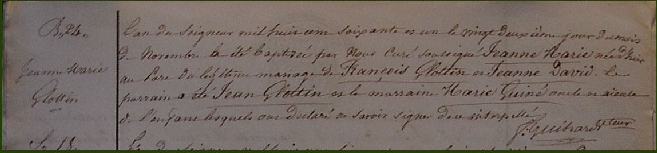 B, 24.
Jeanne Marie
Glottin
L'an du Seigneur mil huit cent soixante et un le vingt deuxième jour du mois
de Novembre a été baptisée par Nous Curé soussigné Jeanne Marie née d'hier
au Pare du légitime mariage de François Glottin et Jeanne David. Le
parrain a été Jean Glottin et la marraine Marie Guiné oncle et aieule
de l'enfant lesquels ont déclaré ne savoir signer de ce interpellé
J. Guihard